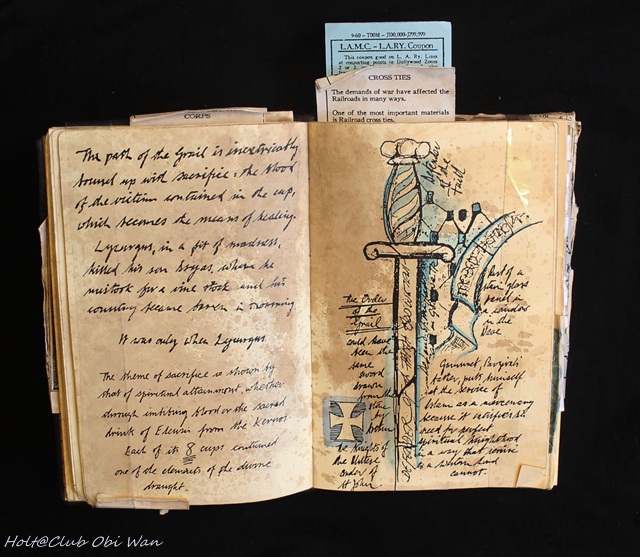 9-60 - TOOM - J100,000-J799,999
L.A.M.C. - L.A.RY. Coupon
This coupon good on L. A. Ry. Lines
at connecting points in Hollywood Zones
CROSS TIES
The demands of war have affected the
Railroads in many ways.
One of the most important materials
is Railroad cross ties.
CORPS
The path of the Grail is inextricably
bound up with sacrifice: the blood
of the victim contained in the cup,
which becomes the means of healing.
Lycurgus, in a fit of madness,
killed his son Dryas, whom he
mistook for a vine stock and his
country became barren in mourning
It was only when Lycurgus
The theme of sacrifice is shown by
that of spiritual attainment, whether
through imbibing blood or the sacred
drink of Eleusis from the Kernos
Each of its 8 cups contained
one of the elements of the divine
draught.
of the
Part of a
glass
panel in
a window
in the
The Order
of the
Grail
could have
been the
same
sword
drawn
from the
stone
by
Arthur
The Knights of
the
Order of
St John
Gamuret, Parzival's
father, puts himself
at the service of
Islam as a mercenary
because it satisfies his
need for perfect
spiritual knighthood
in a way that some
western
cannot.
Holt@Club Obi Wan